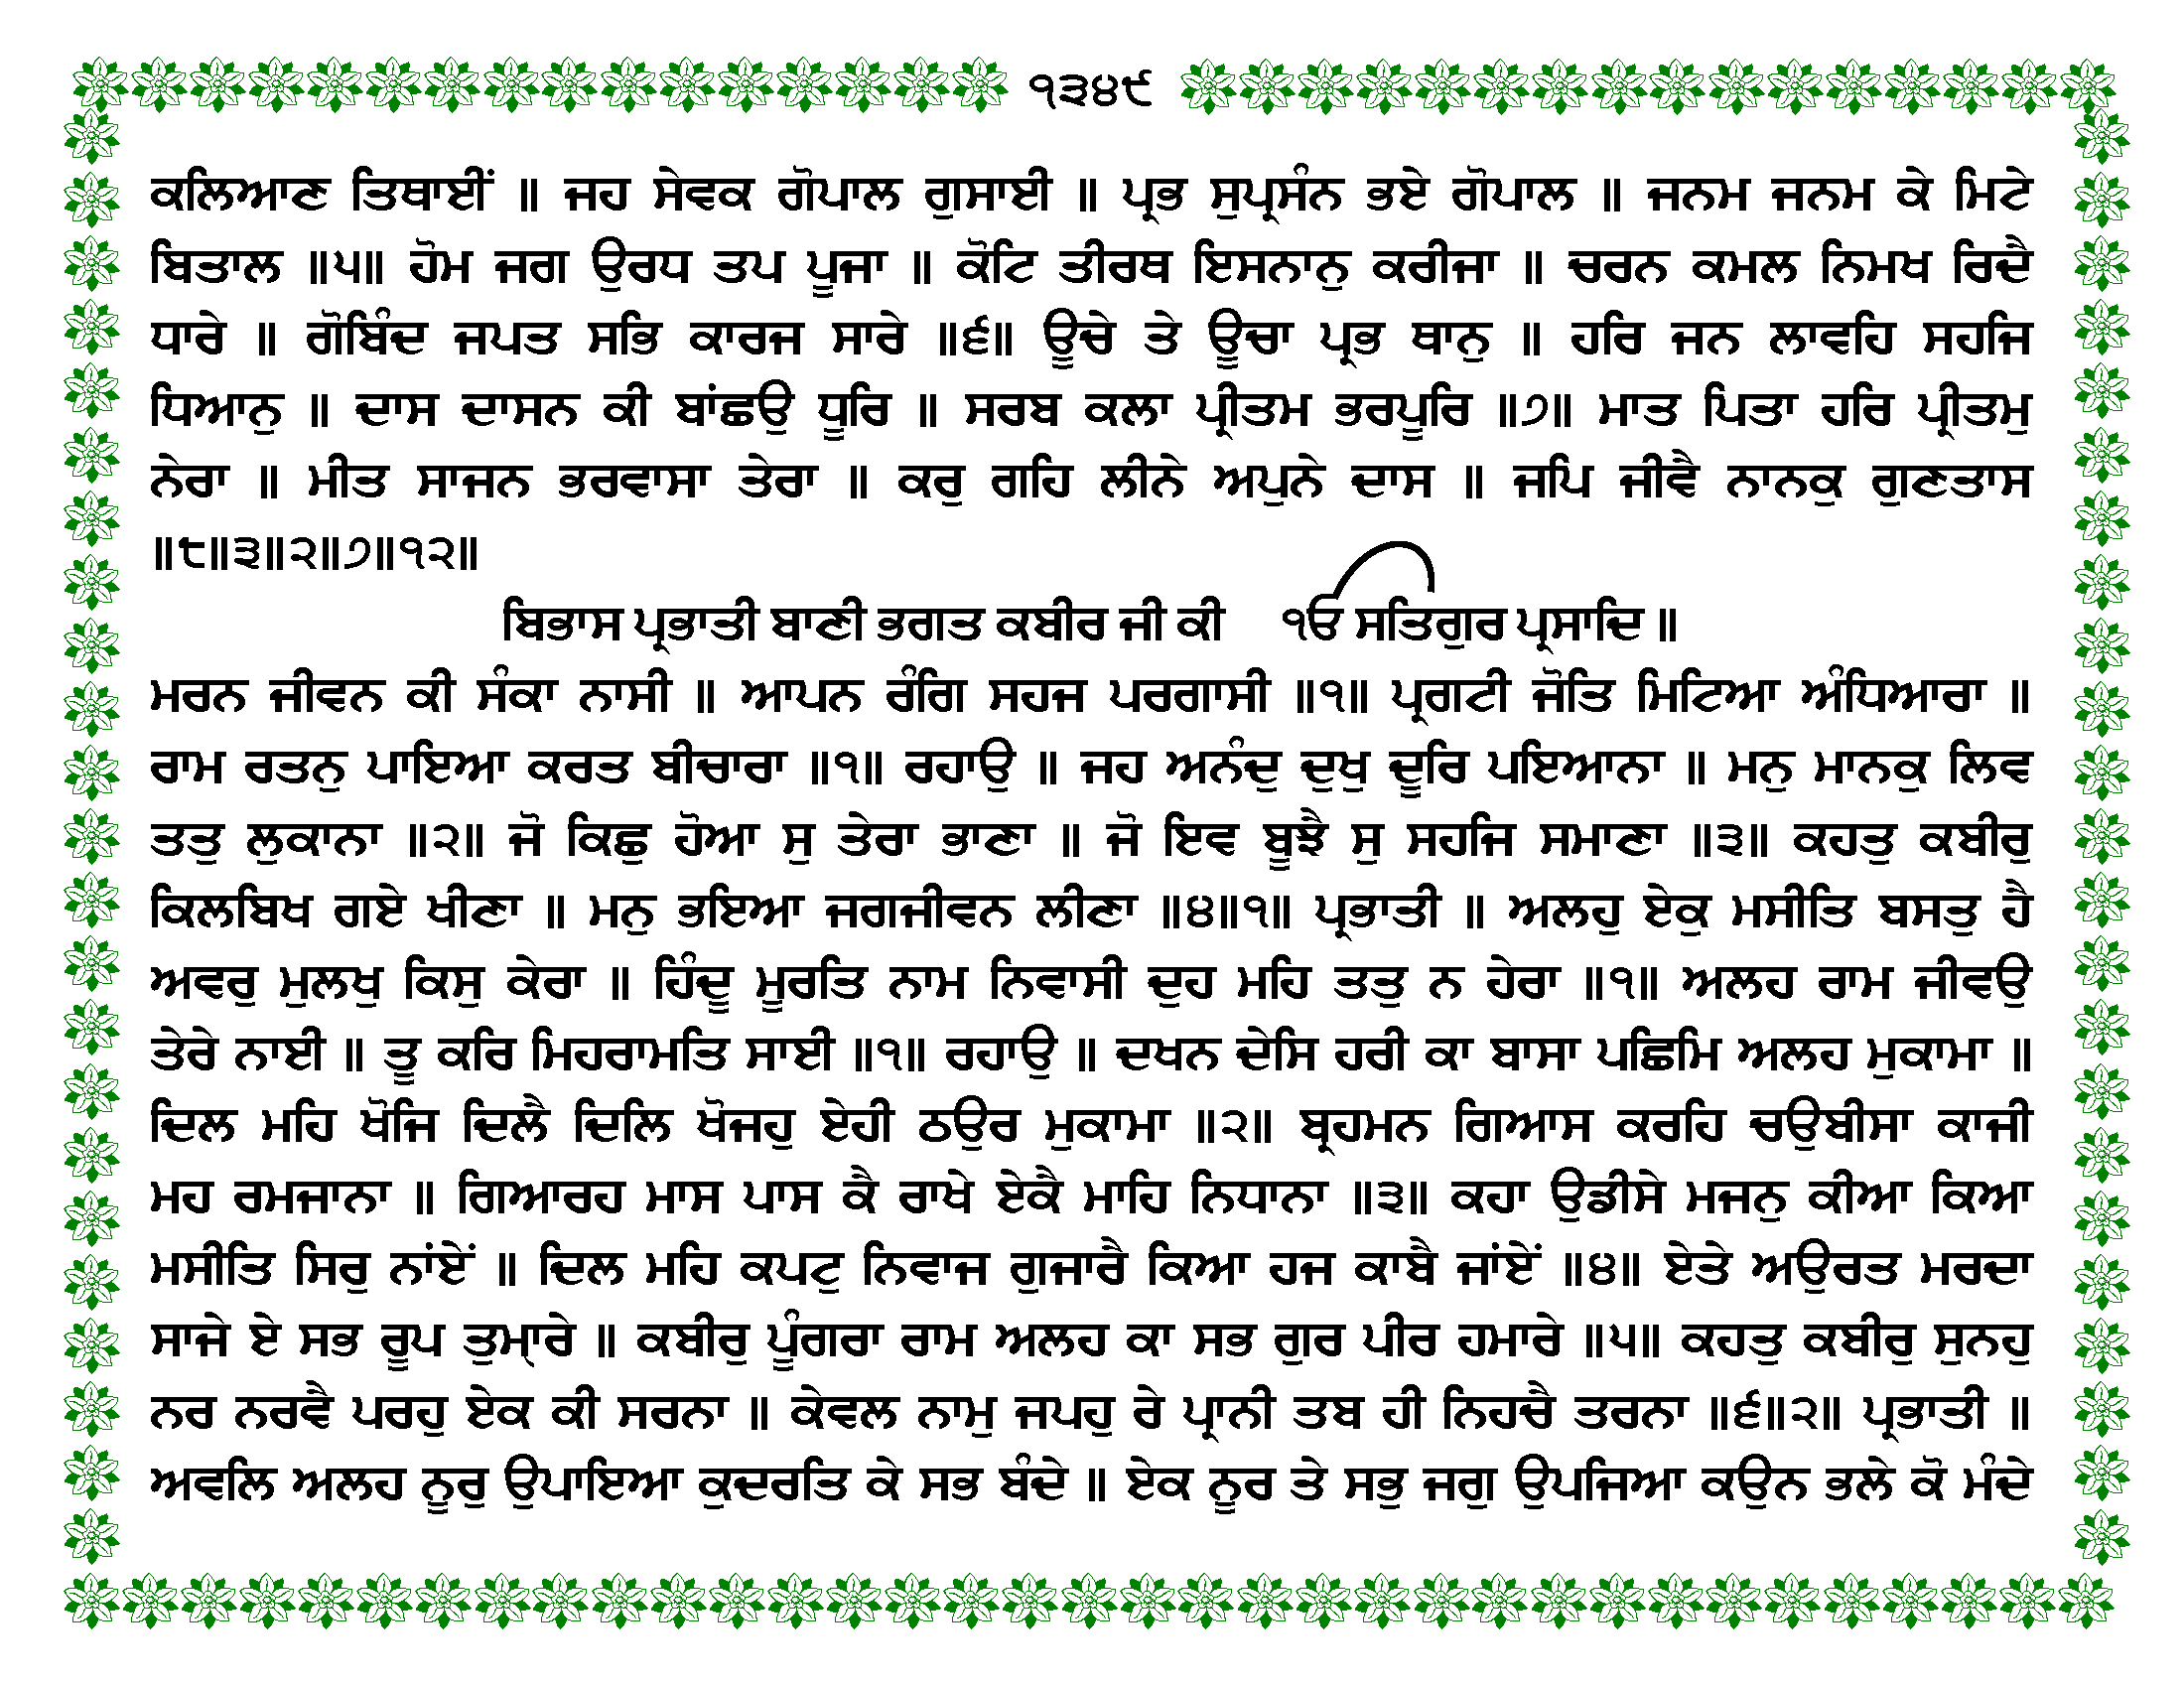 ੧੩੪੯
ਕਲਿਆਣ ਤਿਥਾਈਂ ॥ ਜਹ ਸੇਵਕ ਗੋਪਾਲ ਗੁਸਾਈ ॥ ਪ੍ਰਭ ਸੁਪ੍ਰਸੰਨ ਭਏ ਗੋਪਾਲ ॥ ਜਨਮ ਜਨਮ ਕੇ ਮਿਟੇ
ਬਿਤਾਲ ॥੫॥ ਹੋਮ ਜਗ ਉਰਧ ਤਪ ਪੂਜਾ ॥ ਕੋਟਿ ਤੀਰਥ ਇਸਨਾਨੁ ਕਰੀਜਾ ॥ ਚਰਨ ਕਮਲ ਨਿਮਖ ਰਿਦੈ
ਧਾਰੇ ॥ ਗੋਬਿੰਦ ਜਪਤ ਸਭਿ ਕਾਰਜ ਸਾਰੇ ॥੬॥ ਊਚੇ ਤੇ ਊਚਾ ਪ੍ਰਭ ਥਾਨੁ ॥ ਹਰਿ ਜਨ ਲਾਵਹਿ ਸਹਜਿ
ਧਿਆਨੁ ॥ ਦਾਸ ਦਾਸਨ ਕੀ ਬਾਂਛਉ ਧੂਰਿ ॥ ਸਰਬ ਕਲਾ ਪ੍ਰੀਤਮ ਭਰਪੂਰਿ ॥੭॥ ਮਾਤ ਪਿਤਾ ਹਰਿ ਪ੍ਰੀਤਮੁ
ਨੇਰਾ ॥ ਮੀਤ ਸਾਜਨ ਭਰਵਾਸਾ ਤੇਰਾ ॥ ਕਰੁ ਗਹਿ ਲੀਨੇ ਅਪੁਨੇ ਦਾਸ ॥ ਜਪਿ ਜੀਵੈ ਨਾਨਕੁ ਗੁਣਤਾਸ
॥੮॥੩॥੨॥੭॥੧੨॥
ਬਿਭਾਸ ਪ੍ਰਭਾਤੀ ਬਾਣੀ ਭਗਤ ਕਬੀਰ ਜੀ ਕੀ ੴ ਸਤਿਗੁਰ ਪ੍ਰਸਾਦਿ ॥
ਮਰਨ ਜੀਵਨ ਕੀ ਸੰਕਾ ਨਾਸੀ ॥ ਆਪਨ ਰੰਗਿ ਸਹਜ ਪਰਗਾਸੀ ॥੧॥ ਪ੍ਰਗਟੀ ਜੋਤਿ ਮਿਟਿਆ ਅੰਧਿਆਰਾ ॥
ਰਾਮ ਰਤਨੁ ਪਾਇਆ ਕਰਤ ਬੀਚਾਰਾ ॥੧॥ ਰਹਾਉ ॥ ਜਹ ਅਨੰਦੁ ਦੁਖੁ ਦੂਰਿ ਪਇਆਨਾ ॥ ਮਨੁ ਮਾਨਕੁ ਲਿਵ
ਤਤੁ ਲੁਕਾਨਾ ॥੨॥ ਜੋ ਕਿਛੁ ਹੋਆ ਸੁ ਤੇਰਾ ਭਾਣਾ ॥ ਜੋ ਇਵ ਬੂਝੈ ਸੁ ਸਹਜਿ ਸਮਾਣਾ ॥੩॥ ਕਹਤੁ ਕਬੀਰੁ
ਕਿਲਬਿਖ ਗਏ ਖੀਣਾ ॥ ਮਨੁ ਭਇਆ ਜਗਜੀਵਨ ਲੀਣਾ ॥੪॥੧॥ ਪ੍ਰਭਾਤੀ ॥ ਅਲਹੁ ਏਕੁ ਮਸੀਤਿ ਬਸਤੁ ਹੈ
ਅਵਰੁ ਮੁਲਖੁ ਕਿਸੁ ਕੇਰਾ ॥ ਹਿੰਦੂ ਮੂਰਤਿ ਨਾਮ ਨਿਵਾਸੀ ਦੁਹ ਮਹਿ ਤਤੁ ਨ ਹੇਰਾ ॥੧॥ ਅਲਹ ਰਾਮ ਜੀਵਉ
ਤੇਰੇ ਨਾਈ ॥ ਤੂ ਕਰਿ ਮਿਹਰਾਮਤਿ ਸਾਈ ॥੧॥ ਰਹਾਉ ॥ ਦਖਨ ਦੇਸਿ ਹਰੀ ਕਾ ਬਾਸਾ ਪਛਿਮਿ ਅਲਹ ਮੁਕਾਮਾ ॥
ਦਿਲ ਮਹਿ ਖੋਜਿ ਦਿਲੈ ਦਿਲਿ ਖੋਜਹੁ ਏਹੀ ਠਉਰ ਮੁਕਾਮਾ ॥੨॥ ਬ੍ਰਹਮਨ ਗਿਆਸ ਕਰਹਿ ਚਉਬੀਸਾ ਕਾਜੀ
ਮਹ ਰਮਜਾਨਾ ॥ ਗਿਆਰਹ ਮਾਸ ਪਾਸ ਕੈ ਰਾਖੇ ਏਕੈ ਮਾਹਿ ਨਿਧਾਨਾ ॥੩॥ ਕਹਾ ਉਡੀਸੇ ਮਜਨੁ ਕੀਆ ਕਿਆ
ਮਸੀਤਿ ਸਿਰੁ ਨਾਂਏਂ ॥ ਦਿਲ ਮਹਿ ਕਪਟੁ ਨਿਵਾਜ ਗੁਜਾਰੈ ਕਿਆ ਹਜ ਕਾਬੈ ਜਾਂਏਂ ॥੪॥ ਏਤੇ ਅਉਰਤ ਮਰਦਾ
ਸਾਜੇ ਏ ਸਭ ਰੂਪ ਤੁਮ੍ਹਾਰੇ ॥ ਕਬੀਰੁ ਪੂੰਗਰਾ ਰਾਮ ਅਲਹ ਕਾ ਸਭ ਗੁਰ ਪੀਰ ਹਮਾਰੇ ॥੫॥ ਕਹਤੁ ਕਬੀਰੁ ਸੁਨਹੁ
ਨਰ ਨਰਵੈ ਪਰਹੁ ਏਕ ਕੀ ਸਰਨਾ ॥ ਕੇਵਲ ਨਾਮੁ ਜਪਹੁ ਰੇ ਪ੍ਰਾਨੀ ਤਬ ਹੀ ਨਿਹਚੈ ਤਰਨਾ ॥੬॥੨॥ ਪ੍ਰਭਾਤੀ ॥
ਅਵਲਿ ਅਲਹ ਨੂਰੁ ਉਪਾਇਆ ਕੁਦਰਤਿ ਕੇ ਸਭ ਬੰਦੇ ॥ ਏਕ ਨੂਰ ਤੇ ਸਭੁ ਜਗੁ ਉਪਜਿਆ ਕਉਨ ਭਲੇ ਕੋ ਮੰਦੇ